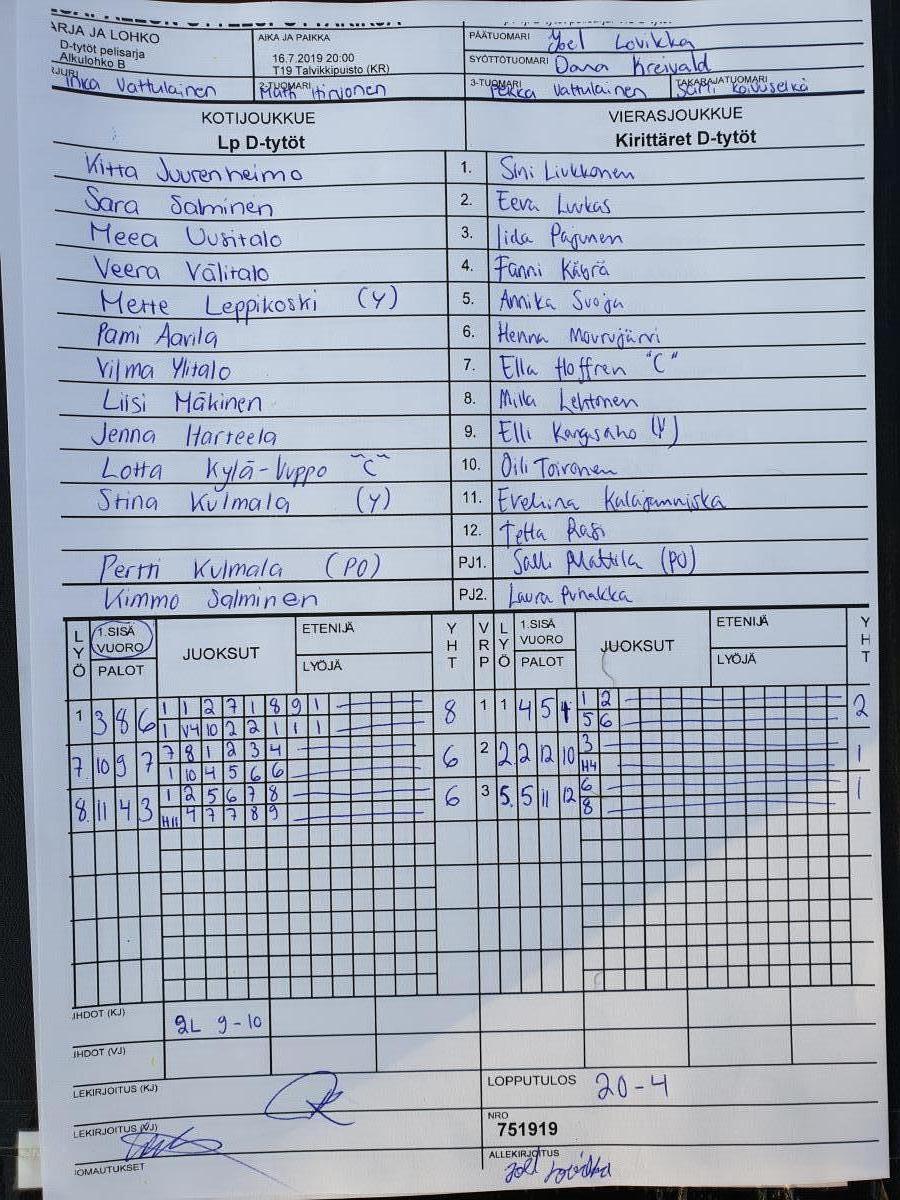 ARJA JA LOHKO
D-tytöt pelisarja
Alkulohko B
AIKA JA PAIKKA
16.7.2019 20:00
T19 Talvikkipuisto (KR)
PÄÄTUOMARI Joel Lovikka
SYÖTTÖTUOMARI Dana Kreivald
Inka Vattulainen
2-TUOMARI Hirvonen
3-TUOMARI Pekka Vattulainen
TAKARAJATUOMARI Sami Koivuselkä
KOTIJOUKKUE VIERASJOUKKUE
Lp D-tytöt Kirittäret D-tytöt
Kitta Juurenheimo 1. Sini Liukkonen
Sara Salminen 2. Eeva Luukas
Meea Uusitalo 3. Iida Pajunen
Veera Välitalo 4. Fanni Käyrä
Mette Leppikoski (Y) 5. Annika Suoja
Pami Aarila 6. Henna Mourujärvi
Vilma Ylitalo 7. Ella Hoffren "C"
Liisi Mäkinen 8. Milla Lehtonen
Jenna Harteela 9. Elli Kangasaho (Y)
Lotta Kylä-Vuppo "C" 10. Oili Toivonen
Stina Kulmala (Y) 11. Eveliina
12. Tetta Rasi
Pertti Kulmala (PO) PJ1. Salli Mattila (PO)
Kimmo Salminen PJ2. Laura Punakka
LYÖ 1.SISÄ VUORO PALOT JUOKSUT ETENIJÄ LYÖJÄ YHT VRP LYÖ 1.SISÄ VUORO PALOT JUOKSUT ETENIJÄ LYÖJÄ YHT
1 3 8 6 1 1 2 7 1 8 9 1 8 1 1 4 5 1 2 2
1 V4 10 2 2 1 1 1 5 6
7. 10 9 7 7 8 1 2 3 4 6 2 2. 2 12 10 3 1
1 10 4 5 6 6 H4
8. 11 4 3 1 2 5 6 7 8 6 3 5. 5 11 12 6 1
H11 4 7 7 8 9 8
IHDOT (KJ) 2L 9-10
IHDOT (VJ)
LEKIRJOITUS (KJ) LOPPUTULOS 20-4
LEKIRJOITUS (VJ) NRO
751919
IOMAUTUKSET ALLEKIRJOITUS